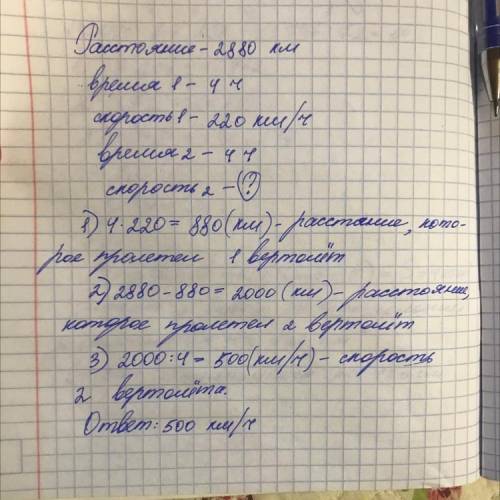 Расстояние - 2880 км
время 1 - 4 ч
скорость 1 - 220 км/ч
время 2 - 4 ч
скорость 2 - ?
1) 4·220= 880 (км) - расстояние, кото-
рое пролетел 1 вертолёт
2) 2880-880= 2000 (км) - расстояние,
которое пролетел 2 вертолёт
3) 2000:4= 500 (км/ч) - скорость
2 вертолёта.
Ответ: 500 км/ч